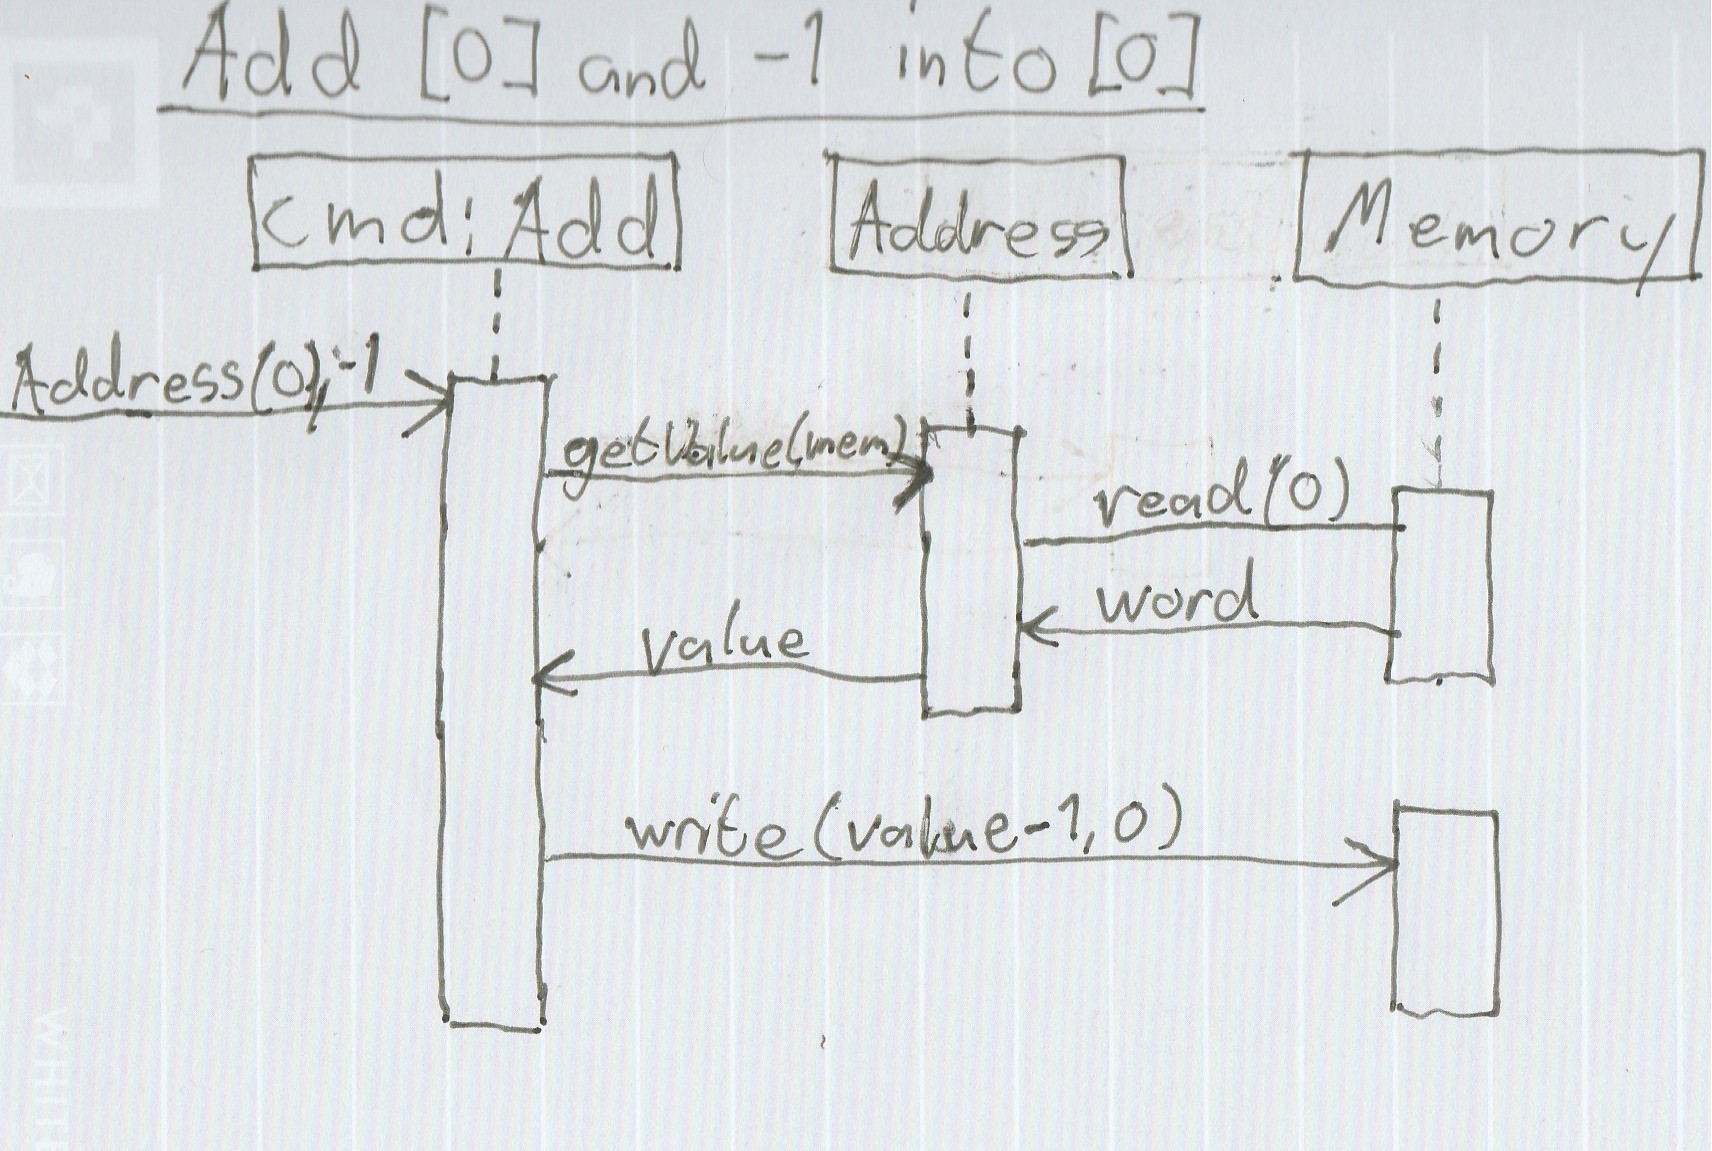 Add [0] and -1 into [0]
cmd: Add
Address
Memory
Address(0),-1
getValue(mem)
read(0)
word
value
write(value-1,0)